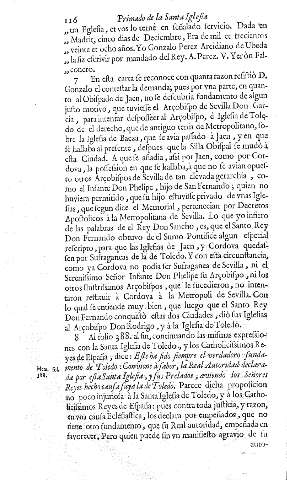 116 Primado de la Santa Iglesia
„ un Eglesia, et vos lo terné en señalado servicio. Dada en
„ Madrid, cinco dias de Deciembre, Era de mil et trecientos
„ veinte et ocho años. Yo Gonzalo Perez Arcidiano de Ubeda
„ la fiz escrivir por mandado del Rey. A. Perez. V. Yerón Fel-
„ conero.
7 En esta carta se reconoce con quanta razon resistió D.
Gonzalo el contestar la demanda; pues por vna parte, en quan-
to al Obispado de Jaen, no se descubria fundamento de algun
justo motivo, que tuviesse el Arçobispo de Sevilla Don Gar-
cia, para intentar despossèer al Arçobispo, è Iglesia de Tole-
do de el derecho, que de antiguo tenia de Metropolitano, so-
bre la Iglesia de Baeza, que se avia passado à Jaen, y en que
se hallaba al presente, despues que la Silla Obispal se mudò à
esta Ciudad. A que se añadia, assi por Jaen, como por Cor-
dova, la possession en que se hallaba, à que no se avian opues-
to otros Arçobispos de Sevilla de tan elevada gerarchia, co-
mo el Infante Don Phelipe, hijo de San Fernando; quien no
huviera permitido, que su hijo estuviesse privado de vnas Igle-
sias, que segun dize el Memorial, pertenecian por Decretos
Apostolicos à la Metropolitana de Sevilla. Lo que yo infiero
de las palabras de el Rey Don Sancho, es, que el Santo Rey
Don Fernando obtuvo de el Sumo Pontifice algun especial
rescripto, para que las Iglesias de Jaen, y Cordova quedas-
sen por Sufraganeas de la de Toledo. Y con esta circunstancia,
como ya Cordova no podia ser Sufraganea de Sevilla, ni el
Serenissimo Señor Infante Don Phelipe su Arçobispo, ni los
otros Ilustrissimos Arçobispos, que le sucedieron, no inten-
taron restituir à Cordova à la Metropoli de Sevilla. Con
lo qual se entiende muy bien, que luego que el Santo Rey
Don Fernando conquistò estas dos Ciudades, diò sus Iglesias
al Arçobispo Don Rodrigo, y à la Iglesia de Toledo.
8 Al folio 388. al fin, continuando las mismas expressio-
nes con la Santa Iglesia de Toledo, y los Catholicissimos Re-
yes de España, dice: Este ha sido siempre el verdadero funda-
mento de Toledo: Conviene à saber, la Real Autoridad declara-
da por esta Santa Iglesia, y sus Prelados, aviendo los Señores
Reyes hecho causa suya la de Toledo. Parece dicha proposicion
no poco injuriosa à la Santa Iglesia de Toledo, y à los Catho-
licissimos Reyes de España: pues contra toda justicia, y razon,
en vna causa Eclesiastica, los declara por empeñados, que no
tiene otro fundamento, que su Real autoridad, empeñada en
favorecer. Pero quien puede sin vn manifiesto agravio de su
388.